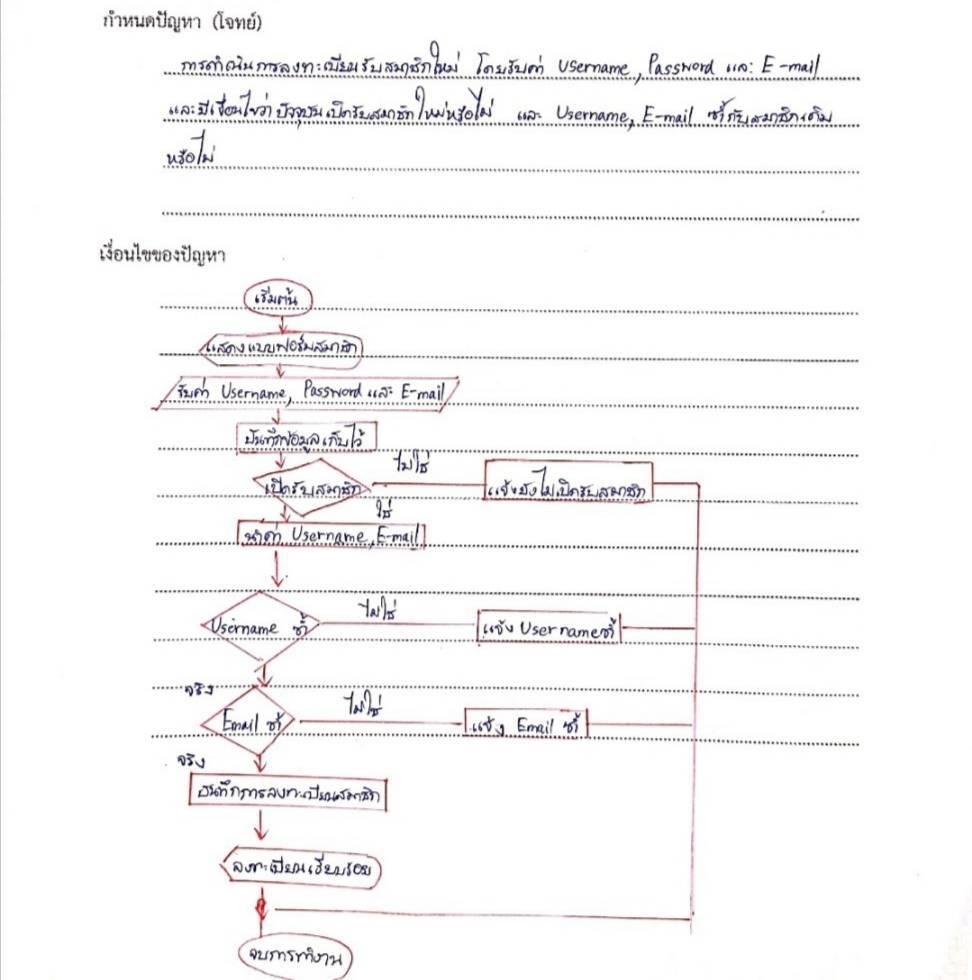 กำหนดปัญหา (โจทย์)
การดำเนินการลงทะเบียนรับสมาชิกใหม่ โดยรับค่า Username, Password และ E-mail
และมีเงื่อนไขว่า ปัจจุบันเปิดรับสมาชิกใหม่หรือไม่ และ Username, E-mail ซ้ำกับสมาชิกเดิม
หรือไม่
เงื่อนไขของปัญหา
เริ่มต้น
แสดงแบบฟอร์มสมาชิก
รับค่า Username, Password และ E-mail
บันทึกข้อมูลเก็บไว้
เปิดรับสมาชิก ไม่ใช่ แจ้งยังไม่เปิดรับสมาชิก
ใช่
นำค่า Username, E-mail
Username ซ้ำ ไม่ใช่ แจ้ง Username ซ้ำ
จริง
Email ซ้ำ ไม่ใช่ แจ้ง Email ซ้ำ
จริง
บันทึกการลงทะเบียนสมาชิก
ลงทะเบียนเรียบร้อย
จบการทำงาน